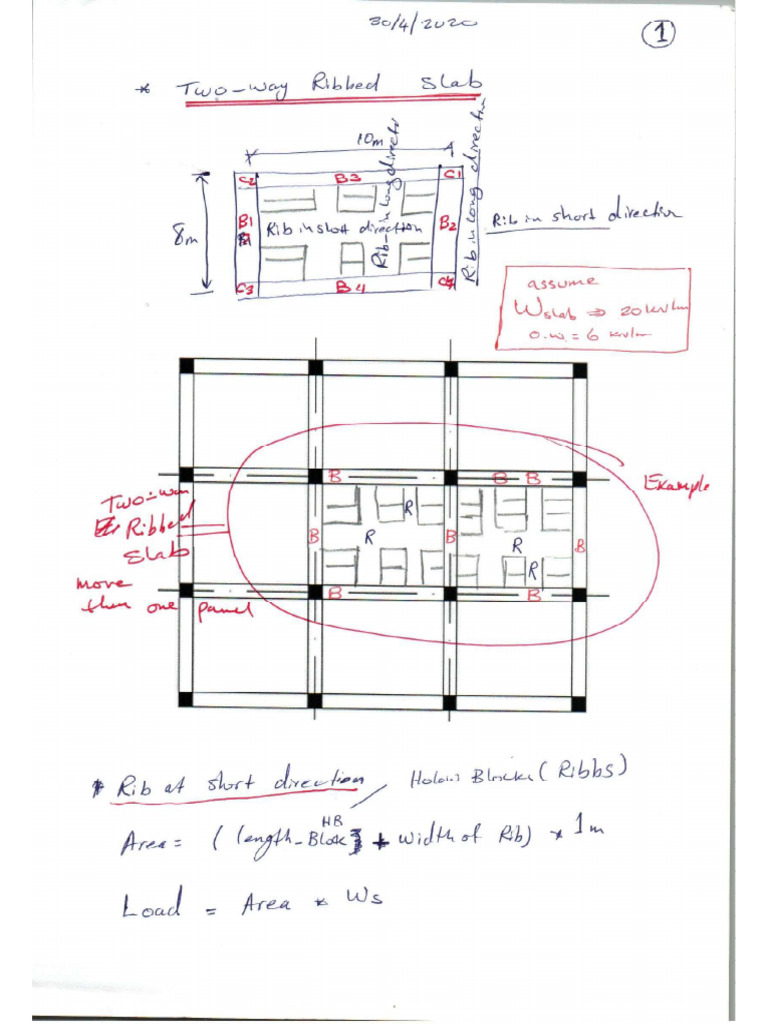 30/4/2020
1
* Two-way Ribbed Slab
10m
C2 B3 C1
8m
B1
B2
Rib in short direction
Rib in long direction
Rib in long direction
Rib in short direction
C3 B4 C4
assume
Wslab ⇒ 20 kN/m
o.w. = 6 kN/m
B B B
Example
Two-way
Ribbed
Slab
more
then one panel
R
B R B R B
R
B B
* Rib at short direction / Holow Blocks (Ribbs)
HB
Area = (length-Block + width of Rib) * 1m
Load = Area * Ws